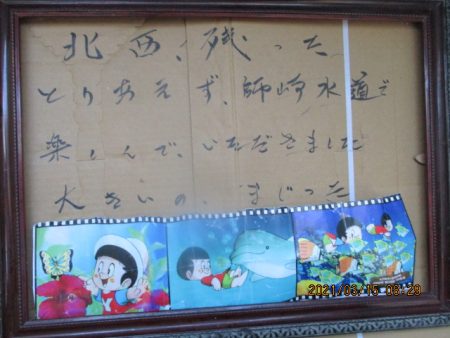 北西、残った
とりあえず、師崎水道で
楽しんで、いただきました
大きいの、まじった
2021/03/15 08:29